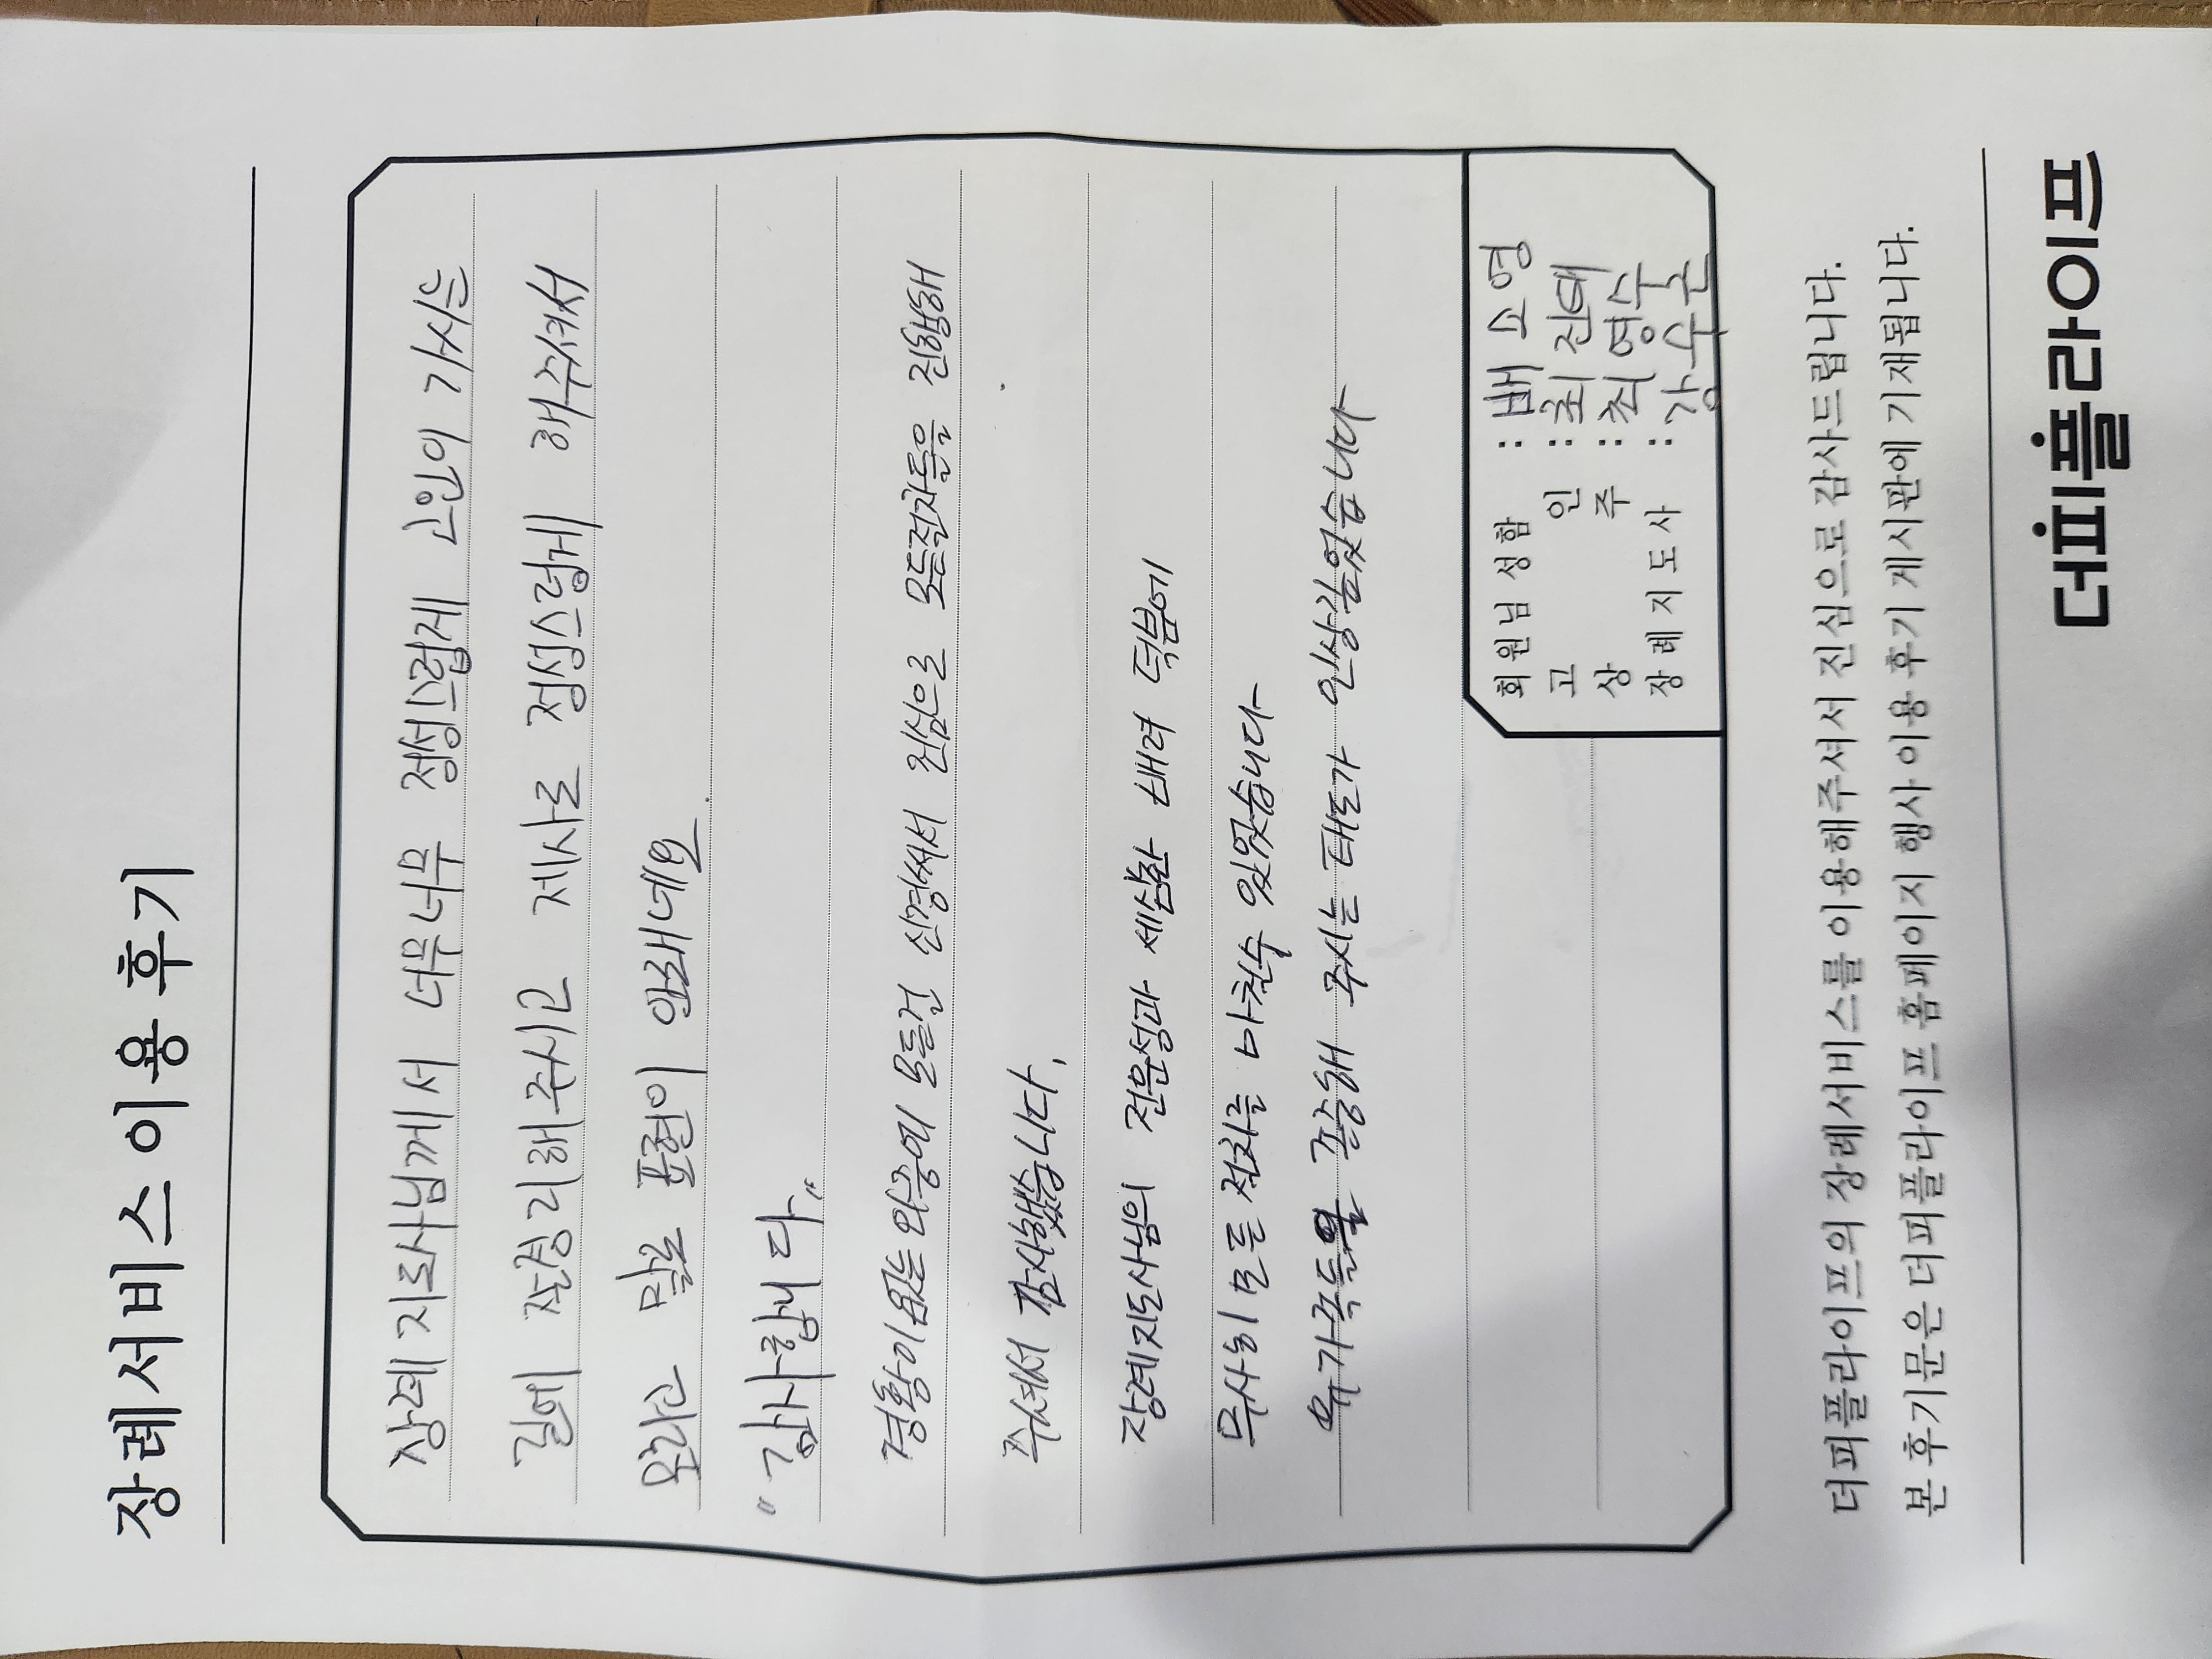 장례서비스 이용 후기
장례지도사님께서 너무너무 정성스럽게 고인의 가시는
길에 잘정리해주시고 제사로 정성스럽게 해주셔서
뭐라고 말로 표현이 안돼네요
"감사합니다"
경황이없는와중에 모든걸 신경써서 진심으로 모든절차들을 진행해
주셔서 감사했습니다.
장례지도사님의 전문성과 세심한 배려 덕분에
무사히 모든 절차를 마칠수 있었습니다
유가족들을 존중해 주시는 태도가 인상깊었습니다
회원님성함 : 배소영
고인 : 최진태
상주 : 최영수
장례지도사 : 강수운
더피플라이프의 장례서비스를 이용해주셔서 진심으로 감사드립니다.
본 후기문은 더피플라이프 홈페이지 행사 이용 후기 게시판에 기재됩니다.
더피플라이프